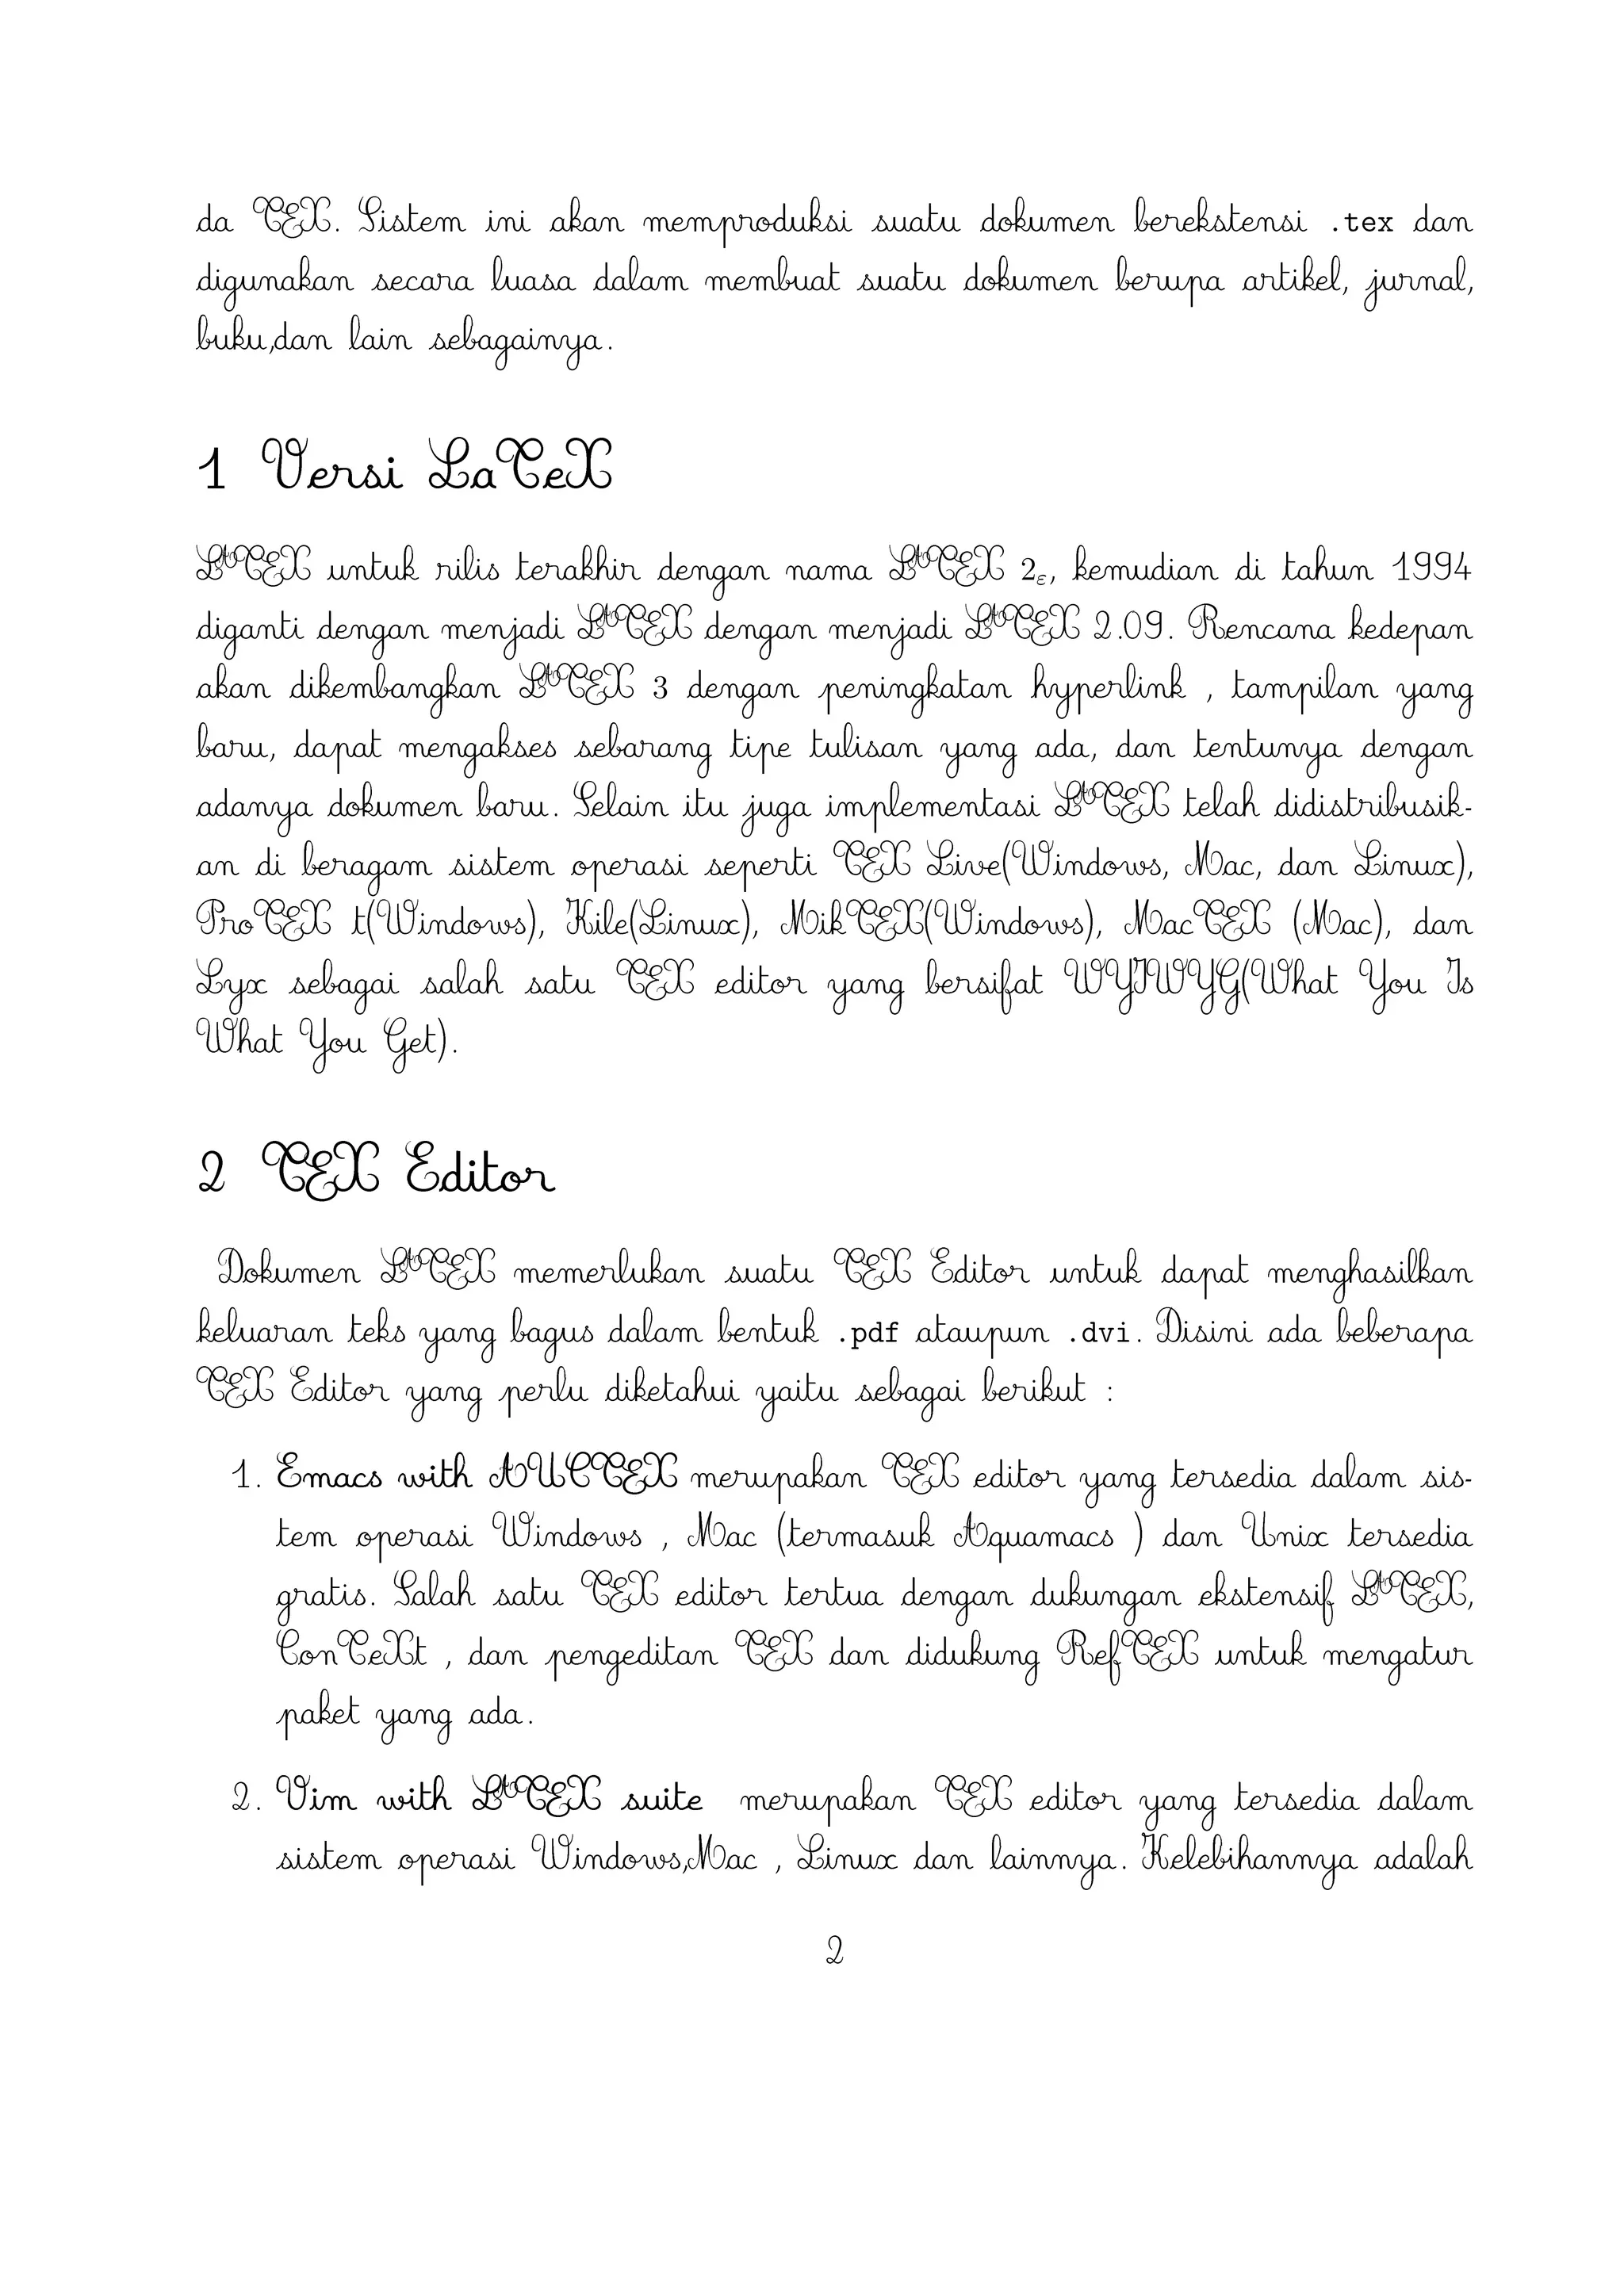 da TEX. Sistem ini akan memproduksi suatu dokumen berekstensi .tex dan
digunakan secara luasa dalam membuat suatu dokumen berupa artikel, jurnal,
buku,dan lain sebagainya.
1 Versi LaTeX
LATEX untuk rilis terakhir dengan nama LATEX 2ε, kemudian di tahun 1994
diganti dengan menjadi LATEX dengan menjadi LATEX 2.09. Rencana kedepan
akan dikembangkan LATEX 3 dengan peningkatan hyperlink , tampilan yang
baru, dapat mengakses sebarang tipe tulisan yang ada, dan tentunya dengan
adanya dokumen baru. Selain itu juga implementasi LATEX telah didistribusik-
an di beragam sistem operasi seperti TEX Live(Windows, Mac, dan Linux),
ProTEX t(Windows), Kile(Linux), MikTEX(Windows), MacTEX (Mac), dan
Lyx sebagai salah satu TEX editor yang bersifat WYIWYG(What You Is
What You Get).
2 TEX Editor
Dokumen LATEX memerlukan suatu TEX Editor untuk dapat menghasilkan
keluaran teks yang bagus dalam bentuk .pdf ataupun .dvi. Disini ada beberapa
TEX Editor yang perlu diketahui yaitu sebagai berikut :
1. Emacs with AUCTEX merupakan TEX editor yang tersedia dalam sis-
tem operasi Windows , Mac (termasuk Aquamacs ) dan Unix tersedia
gratis. Salah satu TEX editor tertua dengan dukungan ekstensif LATEX,
ConTeXt , dan pengeditan TEX dan didukung RefTEX untuk mengatur
paket yang ada.
2. Vim with LATEX suite merupakan TEX editor yang tersedia dalam
sistem operasi Windows,Mac , Linux dan lainnya. Kelebihannya adalah
2